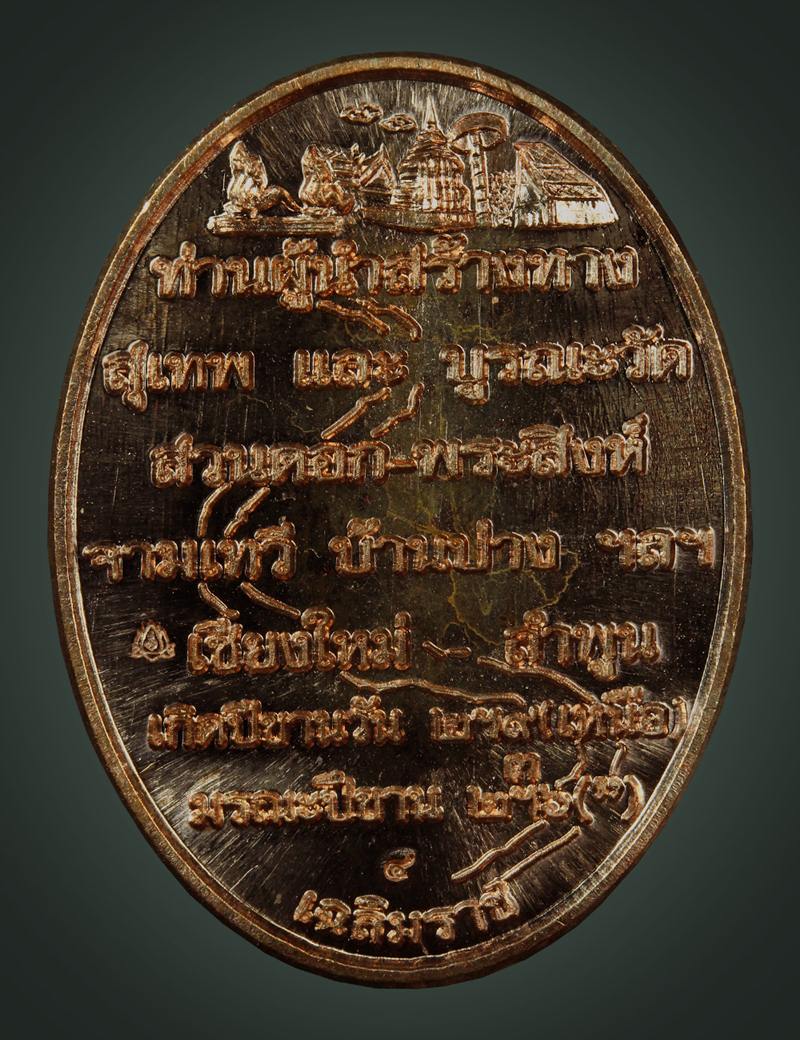 ท่านผู้นำสร้างทาง
สุเทพ และ บูรณะวัด
สวนดอก-พระสิงห์
จามเทวี บ้านปาง ฯลฯ
เชียงใหม่ - ลำพูน
เกิดปีขานวัน (เหนือ)
มรณะปีขาน
๔
เฉลิมราช